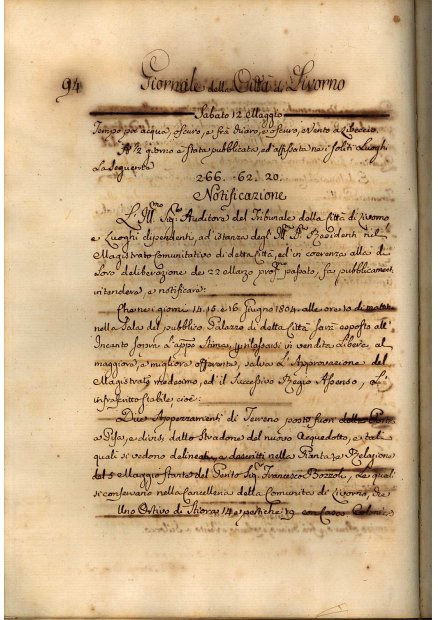 94 Giornale della Città di Livorno
Sabato 12 Maggio
Tempo per acqua, oscuro, e fra chiaro, e oscuro, e Vento a Libeccio
A dì giorno è stata pubblicata, ed affissata nei soliti Luoghi
La seguente
266. 62. 20.
Notificazione
L'Ill.mo Sig.r Auditore del Tribunale della Città di Livorno
e Luoghi dipendenti, ad istanza degl'Ill.mi SS.ri Residenti nel
Magistrato Comunitativo di detta Città, ed in coerenza alla di
Loro deliberazione de 22 Marzo pros.mo passato, fa pubblicament.
intendere, e notificare:
Che nei giorni 15. 16 e 16. Giugno 1804. alle ore 10 di mattina
nella Sala del pubblico Palazzo di detta Città sarà esposto all'
Incanto sopra l'app.a Stima, per rilasciarsi in vendita Libera, al
maggiore, e migliore offerente, salvo l'Approvazione del
Magistrato medesimo, ed il Successivo Regio Assenso, L'
infrascritto stabile cioè:
Due Appezzamenti di Terreno posto fuori della Porta
a Pisa, e divisi dallo Stradone del nuovo Acquedotto, e tali
quali si vedono delineati, e descritti nella Pianta, e Relazione
del 5 Maggio stante del Perito Sig.r Francesco Bozzoli, Le quali
si conservano nella Cancelleria della Comunità di Livorno,
Uno Ortivo di Stiora 14 e pertiche 19 con Casa Colonica